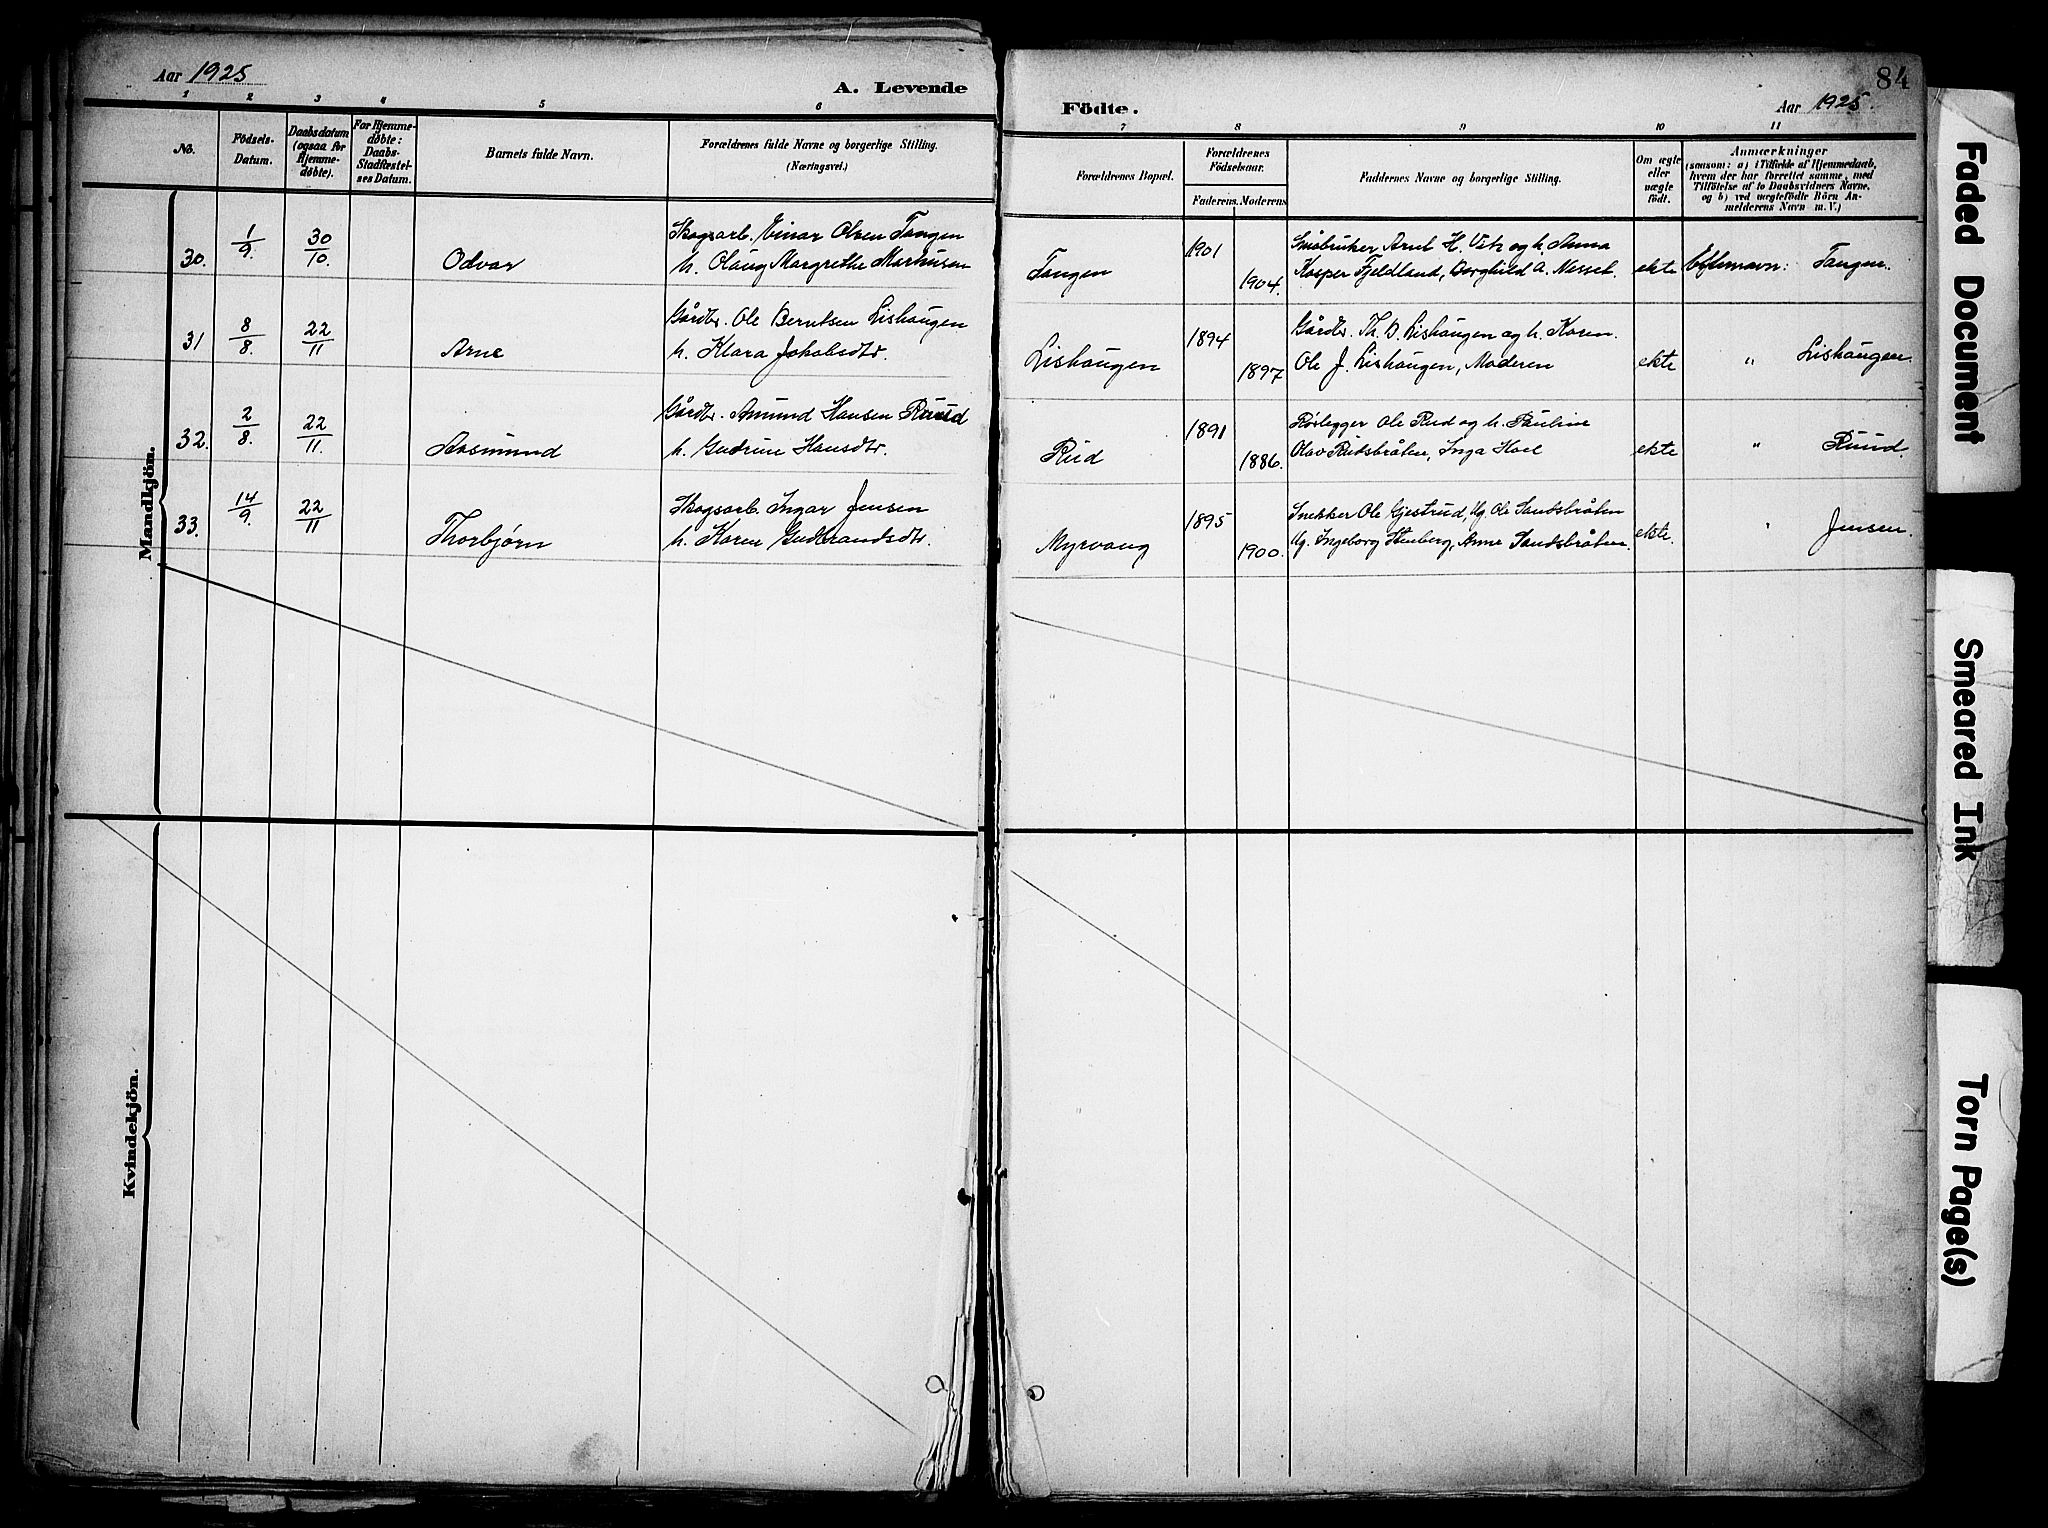 Aar 1925
A. Levende
1 2 3 4 5 6
No.
Födsels-
Datum.
Daabsdatum
(ogsaa for
Hjemme-
døbte).
For Hjemme-
døbte:
Daabs-
Stadfæstel-
ses Datum.
Barnets fulde Navn.
Forældrenes fulde Navne og borgerlige Stilling.
(Næringsvei.)
Mandkjön.
30. 1/9. 30/10. Odvar
Skogsarb. Einar Olsen Tangen
h. Olaug Margrethe Markusen
31 8/8. 22/11 Arne
Gårdbr. Ole Berntsen Lishaugen
h. Klara Jakobsdtr.
32. 2/8. 22/11. Aasmund
Gårdbr. Amund Hansen Ruud
h. Gudrun Hansdtr.
33. 14/9. 22/11 Thorbjørn
Skogsarb. Ingar Jensen
h. Karen Gudbrandsdtr.
Kvindekjön.
84
Födte.
Aar 1925.
7 8 9 10 11
Forældrenes Bopæl.
Forældrenes
Fødselsaar.
Faderens. Moderens
Faddernes Navne og borgerlige Stilling.
Om ægte
eller
uægte
født.
Anmærkninger
(saasom: a) i Tilfælde af Hjemmedaab,
hvem der har forrettet samme, med
Tilföielse af to Daabsvidners Navne,
og b) ved uægtefödte Börn An-
melderens Navn m. V.)
Tangen 1901 1904.
Småbruker Arnt H. og h. Anna
Kasper Fjeldland, Borghild A. Nesset.
ekte Eftenavn: Tangen.
Lishaugen 1894 1897
Gårdbr. Th. B. Lishaugen og h. Karen.
Ole J. Lishaugen, Moderen
ekte " Lishaugen.
Rud 1891 1886.
Rørlegger Ole Rud og h. Pauline
Olav Rudsbråten, Inga Hoel
ekte " Ruud.
Myrvang 1895 1900.
Snekker Ole Gjestrud, Ug. Ole Sandsbråten
Ug. Ingeborg Stenberg, Anne Sandsbråten.
ekte. " Jensen.
Faded Document
Smeared Ink
Torn Page(s)